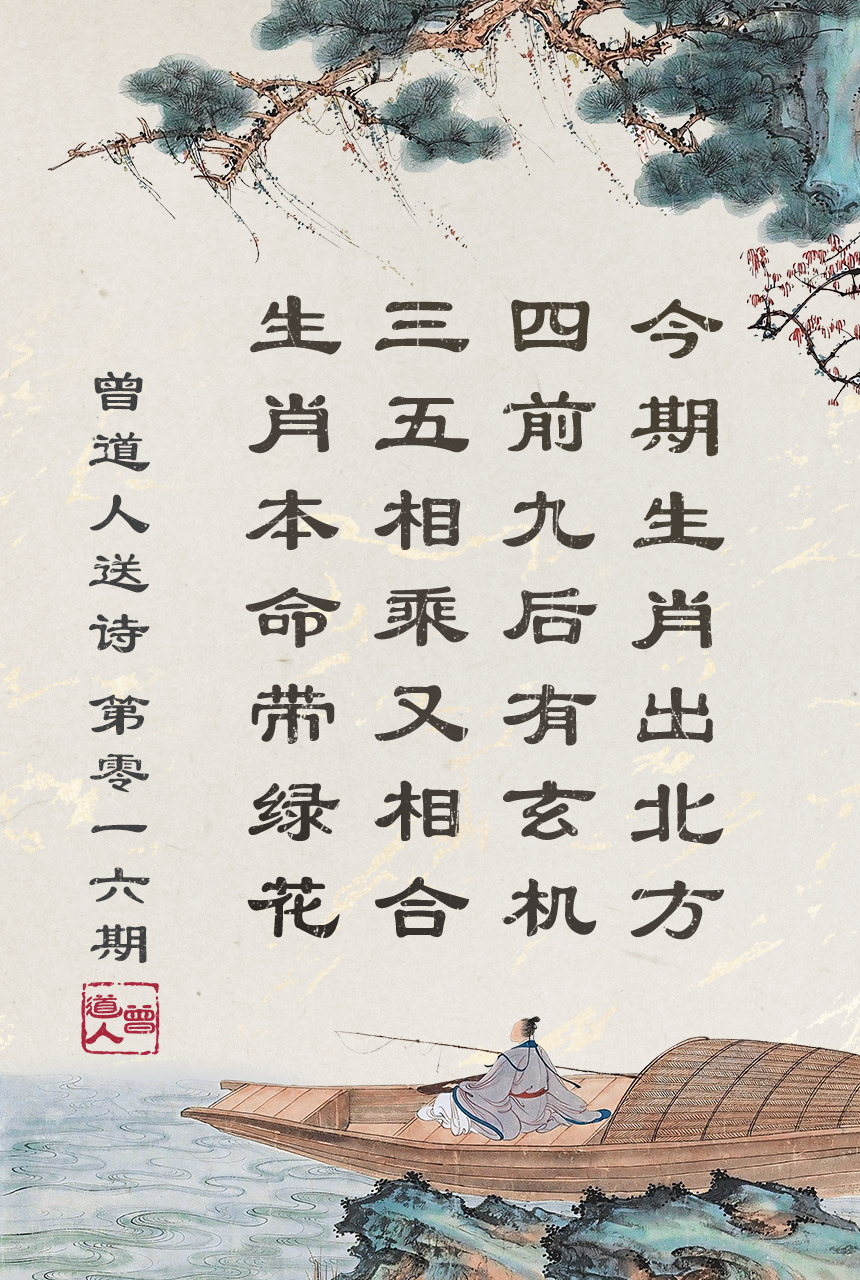 今期生肖出北方
四前九后有玄机
三五相乘又相合
生肖本命带绿花
曾道人送诗 第零一六期
曾道人